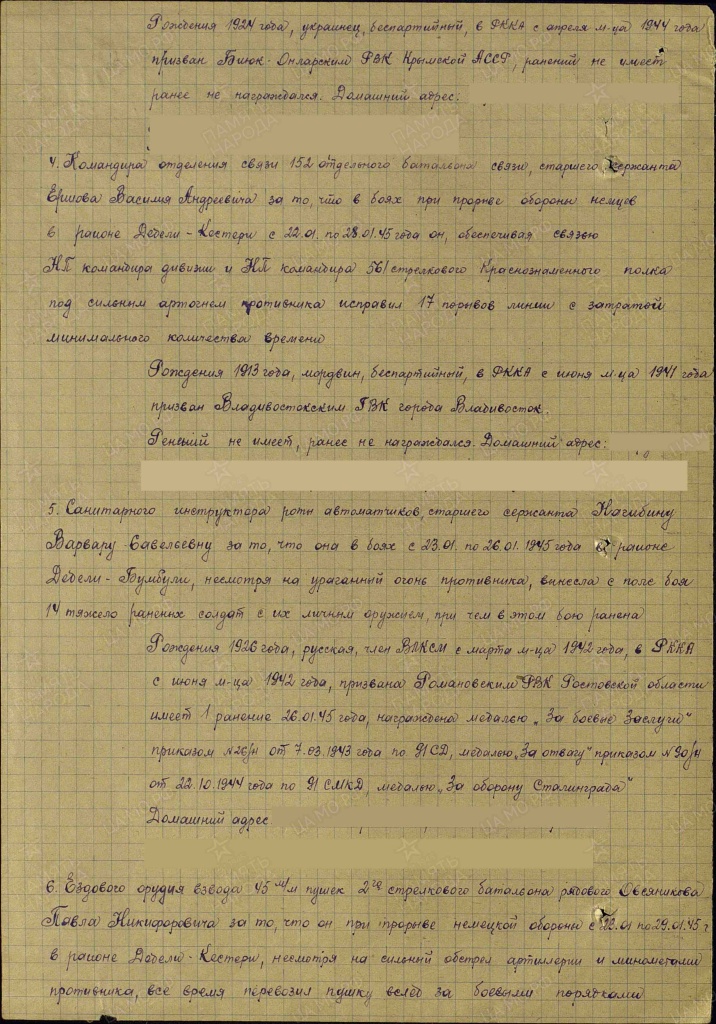 Рождения 1924 года, украинец, беспартийный, в РККА с апреля м-ца 1944 года
призван Биюк-Онларским РВК Крымской АССР, ранений не имеет
ранее не награждался. Домашний адрес:
4. Командира отделения связи 152 отдельного батальона связи, старшего сержанта
Ершова Василия Андреевича за то, что в боях при прорыве обороны немцев
в районе Дебели-Кестери с 22.01. по 28.01.45 года он, обеспечивая связью
НП командира дивизии и НП командира 561 стрелкового Краснознаменного полка
под сильным артогнем противника исправил 17 порывов линии с затратой
минимального количества времени
Рождения 1913 года, мордвин, беспартийный, в РККА с июня м-ца 1941 года
призван Владивостокским ГВК города Владивосток.
Ранений не имеет, ранее не награждался. Домашний адрес:
5. Санитарного инструктора роты автоматчиков, старшего сержанта Нагибину
Варвару Савельевну за то, что она в боях с 23.01. по 26.01.1945 года в районе
Дебели-Бумбули, несмотря на ураганный огонь противника, вынесла с поля боя
14 тяжело раненых солдат с их личным оружием, при чем в этом бою ранена
Рождения 1926 года, русская, член ВЛКСМ с марта м-ца 1942 года, в РККА
с июня м-ца 1942 года, призвана Романовским РВК Ростовской области
имеет 1 ранение 26.01.45 года, награждена медалью „За боевые Заслуги"
приказом №26/н от 7.03.1943 года по 91СД, медалью „За отвагу" приказом №30/н
от 22.10.1944 года по 91 СМКД, медалью „За оборону Сталинграда"
Домашний адрес
6. Ездового орудия взвода 45 м/м пушек 2го стрелкового батальона рядового Овсяникова
Павла Никифоровича за то, что он при прорыве немецкой обороны с 22.01 по 29.01.45 г
в районе Дебели-Кестери, несмотря на сильный обстрел артиллерии и минометами
противника, все время перевозил пушку вслед за боевыми порядками